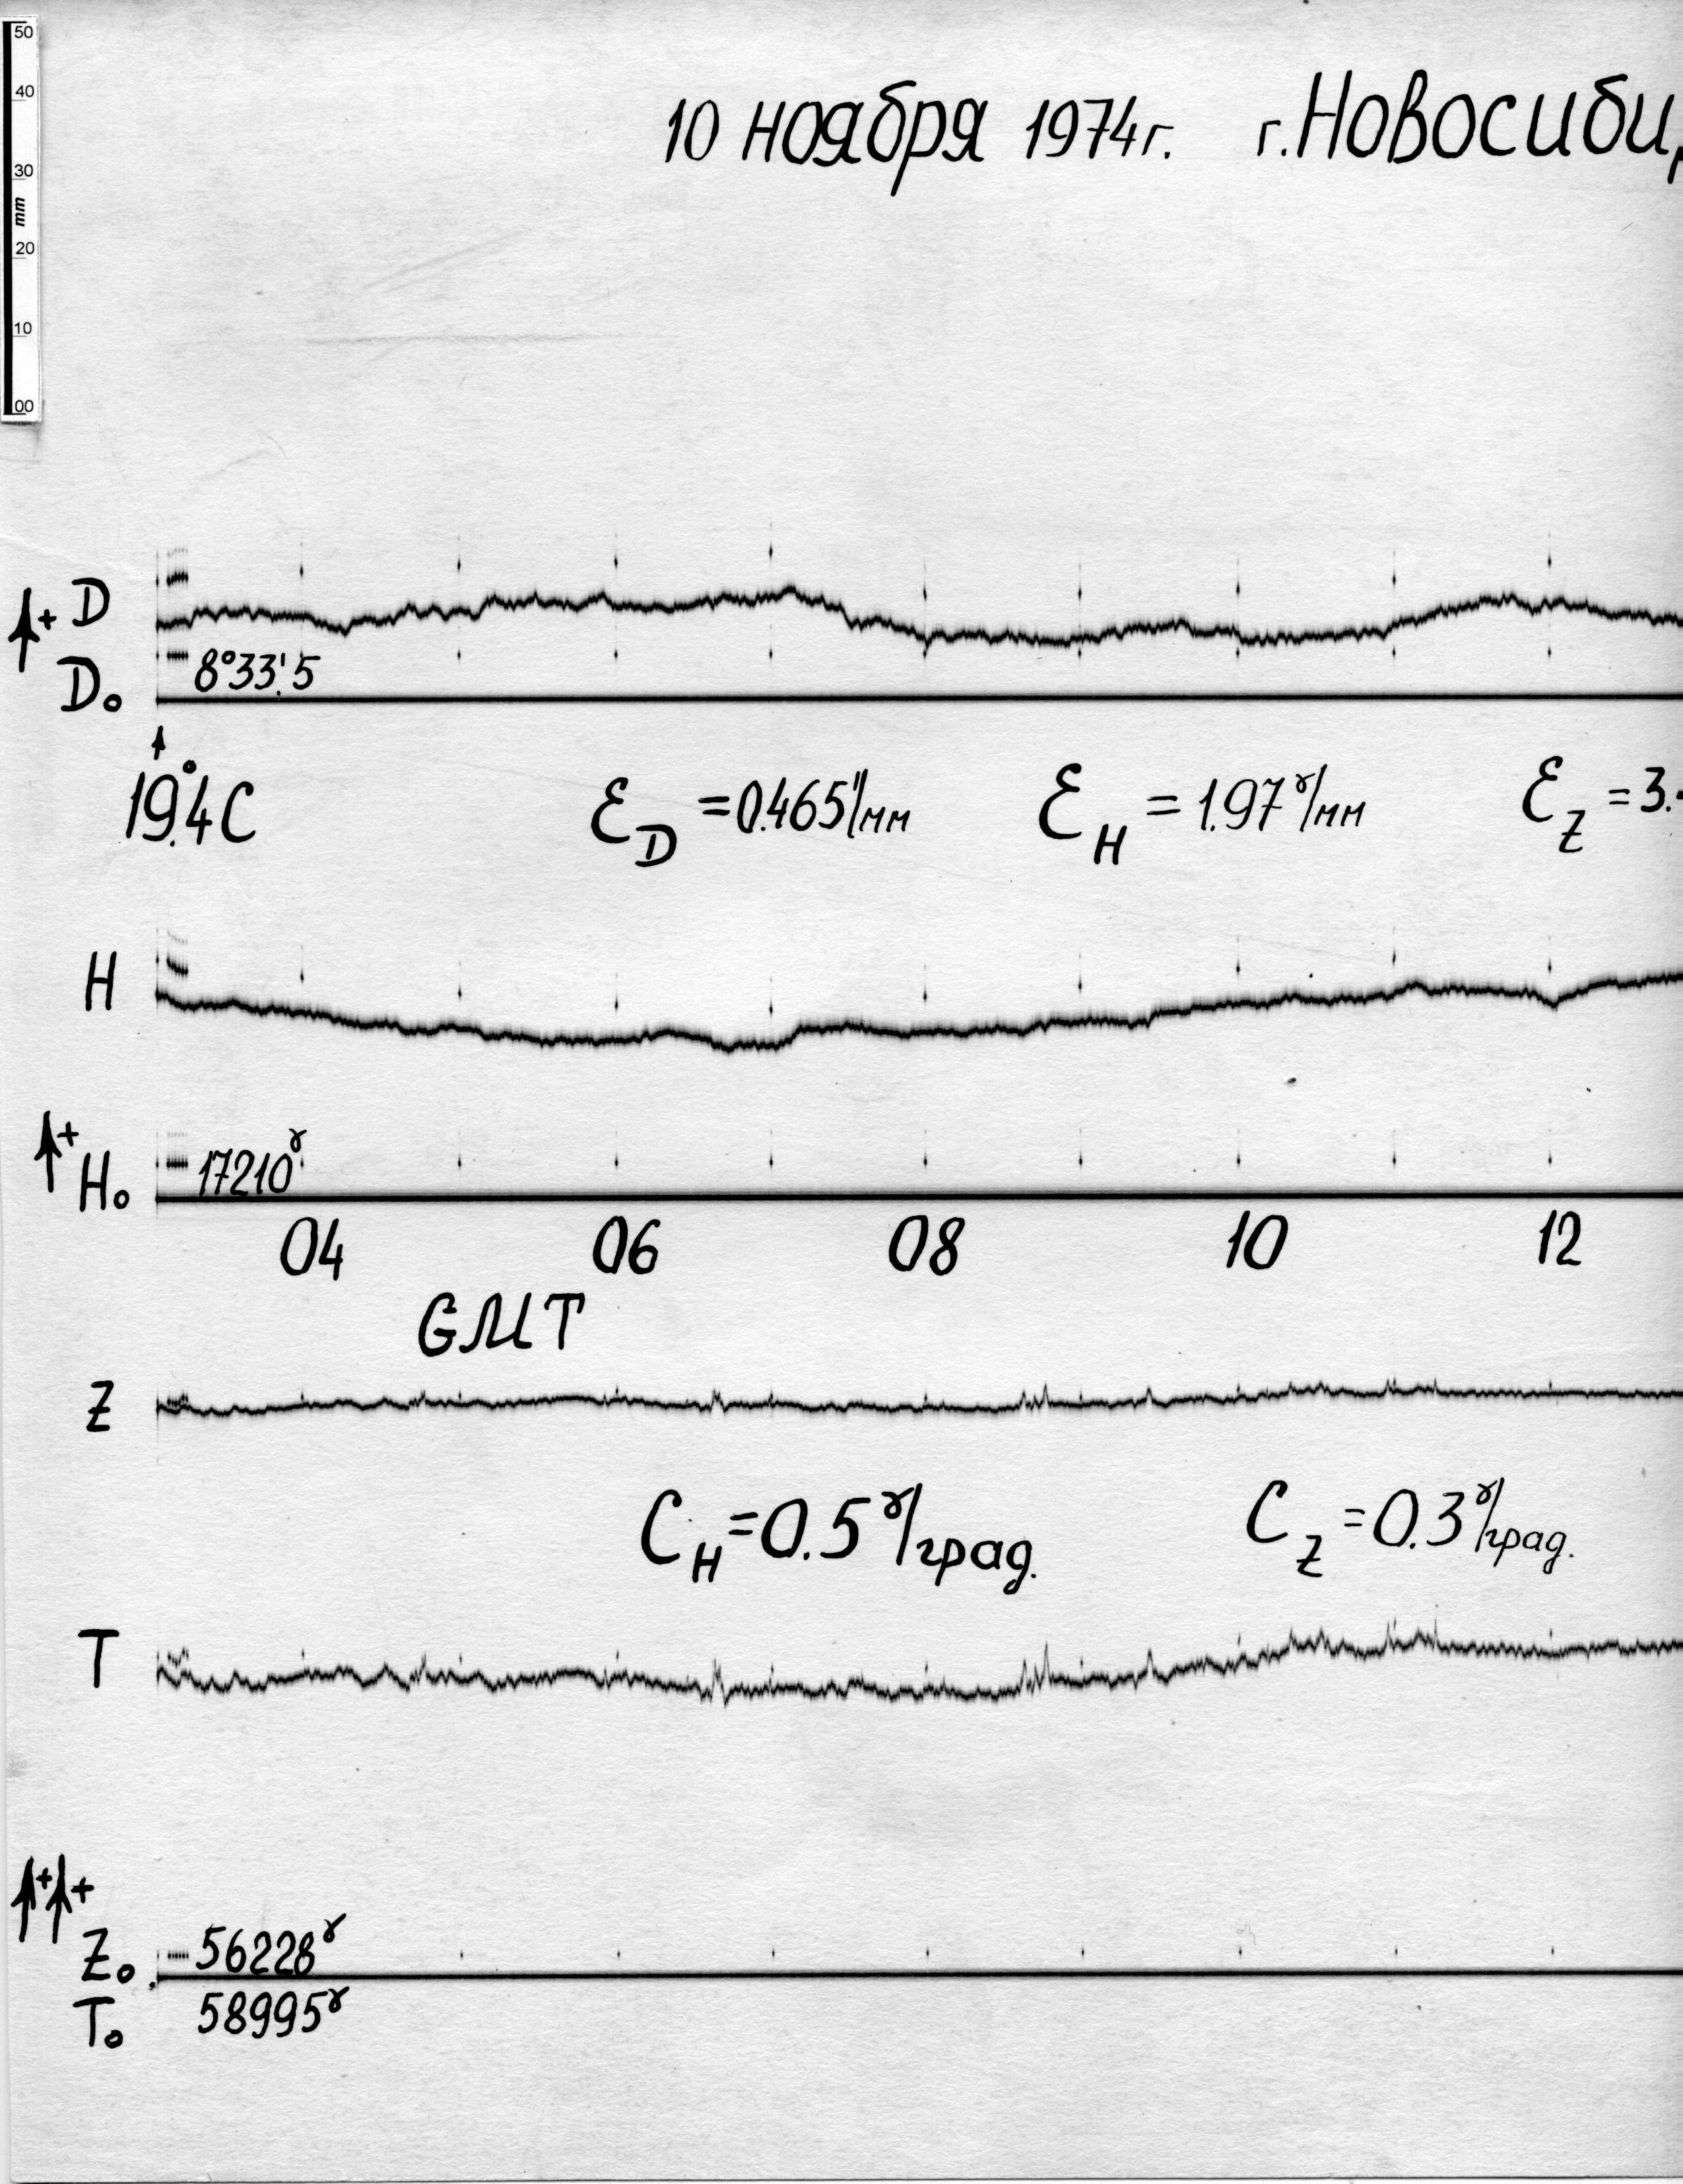 50
40
30
mm
20
10
00
10 ноября 1974г. г. Новосиби
+ D
8°33!5
D₀
19°.4 C
ℰD = 0.465'/мм ℰH = 1.97ˠ/мм ℰZ = 3.
H
+
17210ˠ
H₀
04 06 08 10 12
GMT
Z
CH = 0.5ˠ/град. CZ = 0.3ˠ/град.
T
+ +
Z₀ 56228ˠ
T₀ 58995ˠ